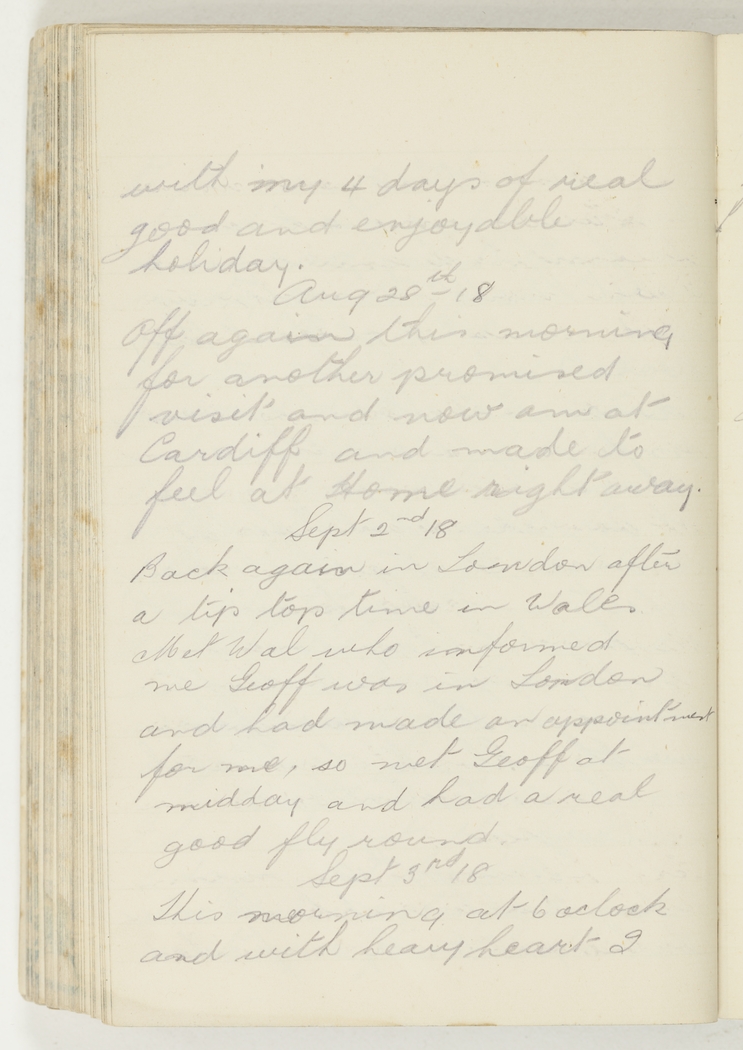 with my 4 days of real
good and enjoyable
holiday.
Aug 28th 18
Off again this morning
for another promised
visit and now am at
Cardiff and made to
feel at Home right away.
Sept 2nd 18
Back again in London after
a tip top time in Wales
Met Wal who informed
me Geoff was in London
and had made an appointment
for me, so met Geoff at
midday and had a real
good fly round.
Sept 3rd 18
This morning at 6 oclock
and with heavy heart I